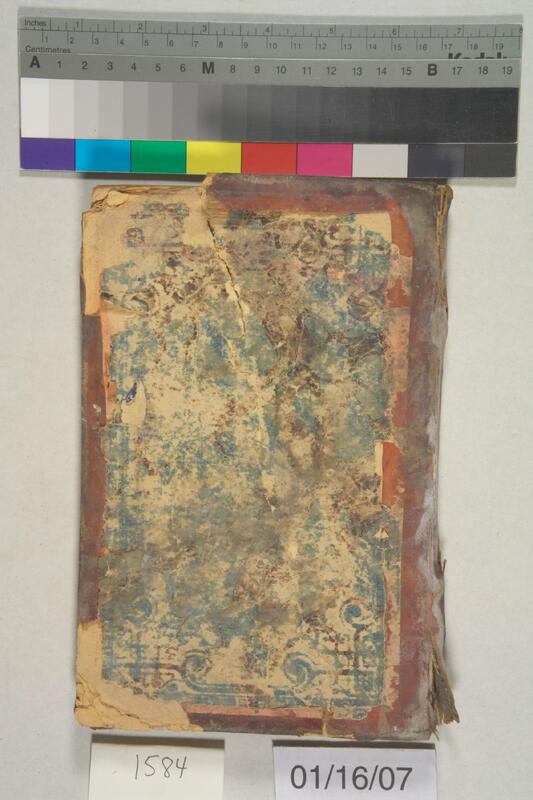 Inches 1 2 3 4 5 6 7 8
Centimetres 1 2 3 4 5 6 7 8 9 10 11 12 13 14 15 16 17 18 19
Kodak
A 1 2 3 4 5 6 M 8 9 10 11 12 13 14 15 B 17 18 19
1584
01/16/07